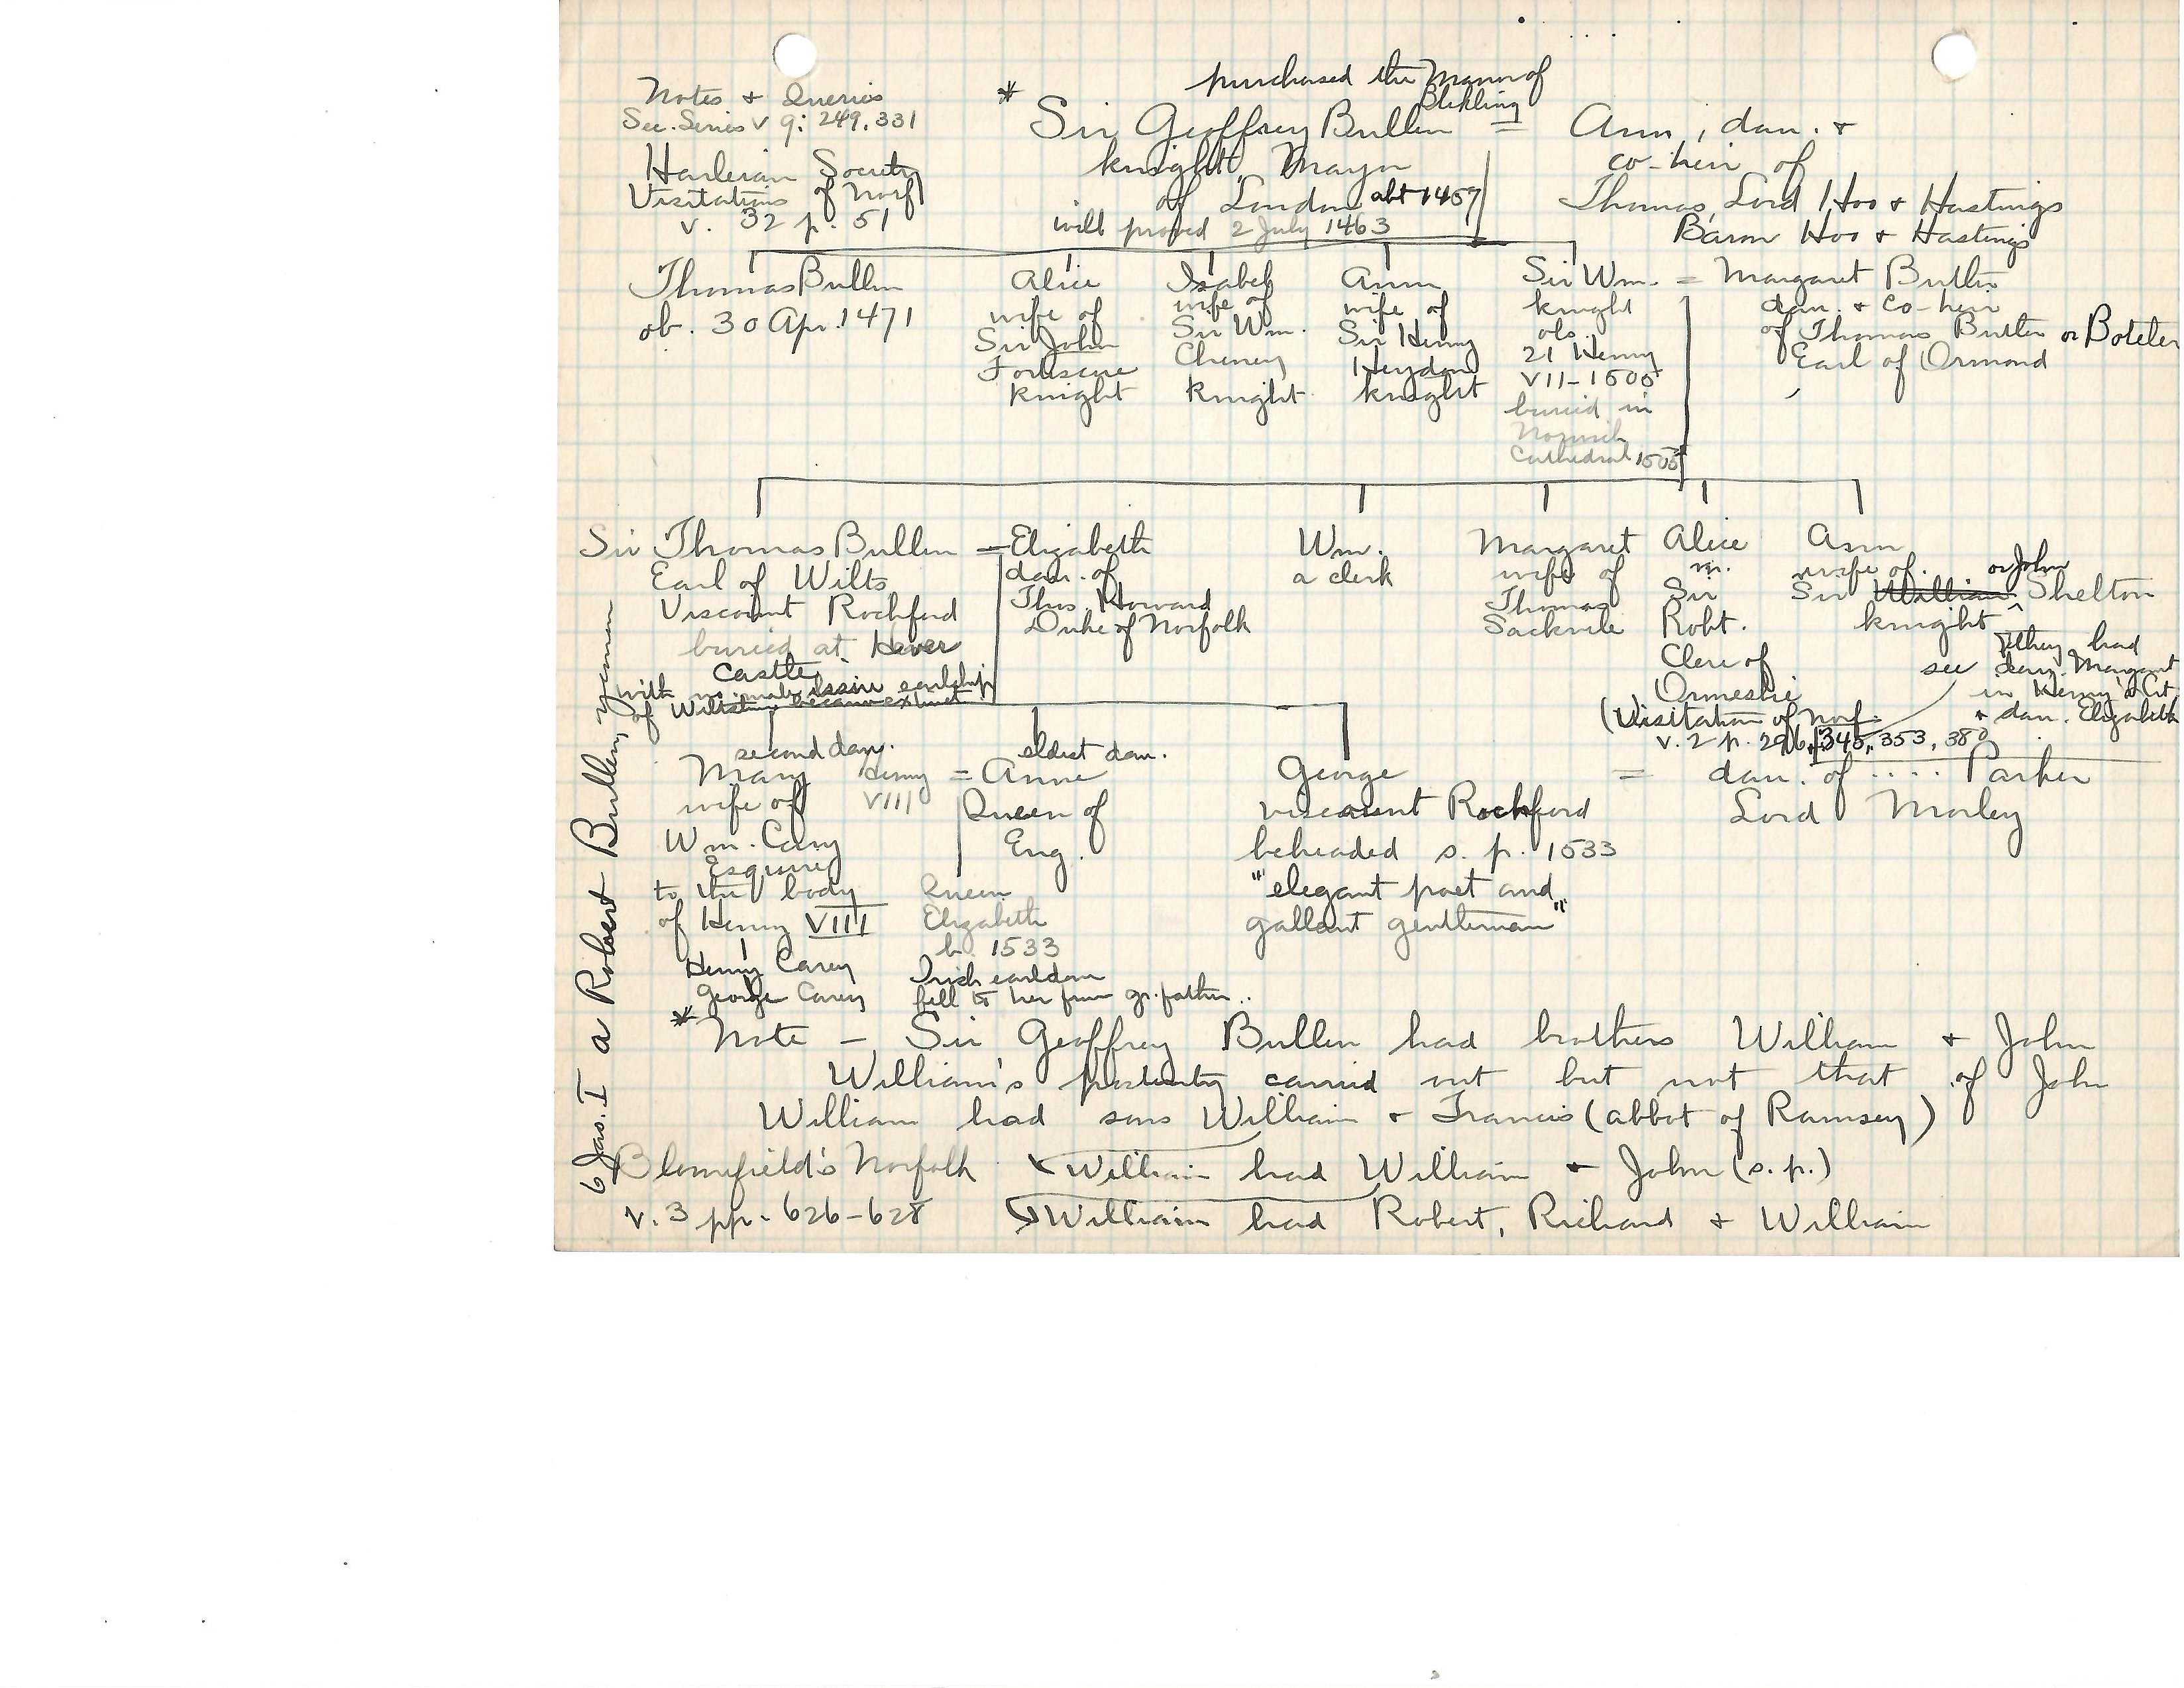 Notes & Queries
Sec. Series v 9: 249, 331
Harleian Society
Visitations of Norf
v. 32 p. 51
purchased the Manor of
Blickling
* Sir Geoffrey Bullen = Ann, dau. &
knight, Mayor
co-heir of
of London abt 1457
Thomas, Lord Hoo & Hastings
will proved 2 July 1463
Baron Hoo & Hastings
Thomas Bullen
ob. 30 Apr. 1471
Alice
wife of
Sir John
Fortescue
knight
Isabel
wife of
Sir Wm.
Cheney
knight
Ann
wife of
Sir Henry
Heydon
knight
Sir Wm. = Margaret Butler
knight
ob.
21 Henry
VII - 1505
buried in
Norwich
Cathedral 1505
dau. & co-heir
of Thomas Butler or Boteler
Earl of Ormond
Sir Thomas Bullen = Elizabeth
Earl of Wilts
Viscount Rochford
buried at Hever
Castle
with no male issue earldom
of Wiltshire became extinct
dau. of
Thos. Howard
Duke of Norfolk
Wm.
a clerk
Margaret
wife of
Thomas
Sackvile
Alice
m.
Sir
Robt.
Clere of
Ormesbie
(Visitation of Norf.
v. 2 p. 296, 345, 353, 380
Ann
wife of
or John
Sir William Shelton
knight
they had
see dau. Margaret
in Henry's Crt.
& dau. Elizabeth
second dau.
Mary
wife of
Wm. Cary
Esquire
to the body
of Henry VIII
Henry Carey
George Carey
eldest dau.
Henry = Anne
VIII
Queen of
Eng.
Queen
Elizabeth
b. 1533
Irish earldom
fell to her from gr. father..
George = dau. of .... Parker
viscount Rochford
Lord Morley
beheaded s. p. 1533
"elegant poet and
gallant gentleman"
* Note - Sir Geoffrey Bullen had brothers William & John
William's posterity carried out but not that of John
William had sons William & Francis (abbot of Ramsey)
Blomefield's Norfolk
v. 3 pp. 626-628
William had William & John (s. p.)
William had Robert, Richard & William
6 Jas. I a Robert Bullen, yeoman